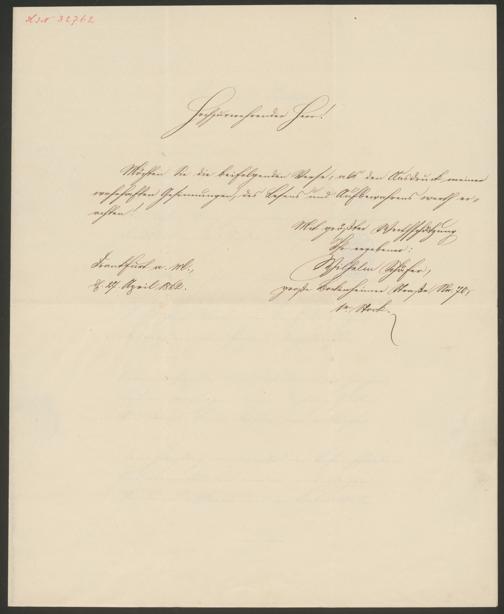 H.I.N. 32762
Hochzuverehrender Herr!
Möchten Sie die beifolgenden Verse, als den Ausdruck meiner
wahrhaften Gesinnungen, des Lesens und Aufbewahrens werth er-
achten!
Mit größter Werthschätzung
Ihr ergebener:
Wilhelm Schäfer,
große Bockenheimer Straße Nr. 72,
1r. Stock.
Frankfurt a. M.,
27 April 1862.